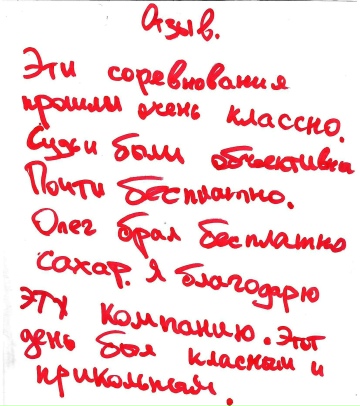 Отзыв.
Эти соревнования
прошли очень классно.
Судьи были объективны
Почти бесплатно.
Олег брал бесплатно
сахар. Я благодарю
эту компанию. Этот
день был класным и
прикольным.